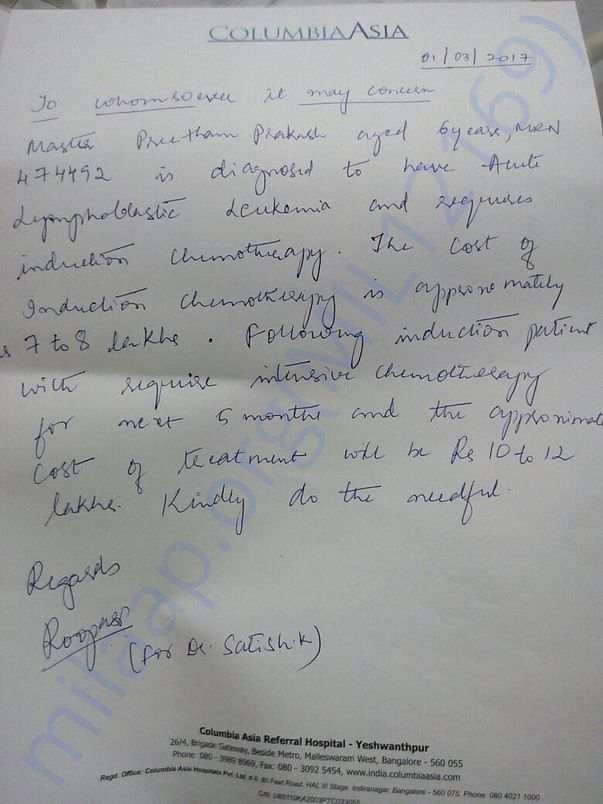 COLUMBIA ASIA
01/03/2017
To whomsoever it may concern
Master Preetham Prakash aged 6years, MRN
474492 is diagnosed to have Acute
Lymphoblastic Leukemia and requires
induction chemotherapy. The cost of
Induction chemotherapy is approximately
Rs 7 to 8 lakhs. Following induction patient
with require intensive chemotherapy
for next 5 months and the approximate
cost of treatment will be Rs 10 to 12
lakhs. Kindly do the needful.
Regards
(for Dr. Satish.K)
Columbia Asia Referral Hospital - Yeshwanthpur
26/4, Brigade Gateway, Beside Metro, Malleswaram West, Bangalore - 560 055
Phone: 080 - 3989 8969, Fax: 080 - 3092 5454, www.india.columbiaasia.com
Regd. Office: Columbia Asia Hospitals Pvt. Ltd. 80 Feet Road, HAL III Stage, Indiranagar, Bangalore - 560 075, Phone: 080 4021 1000
milaap.org(MIL112169)